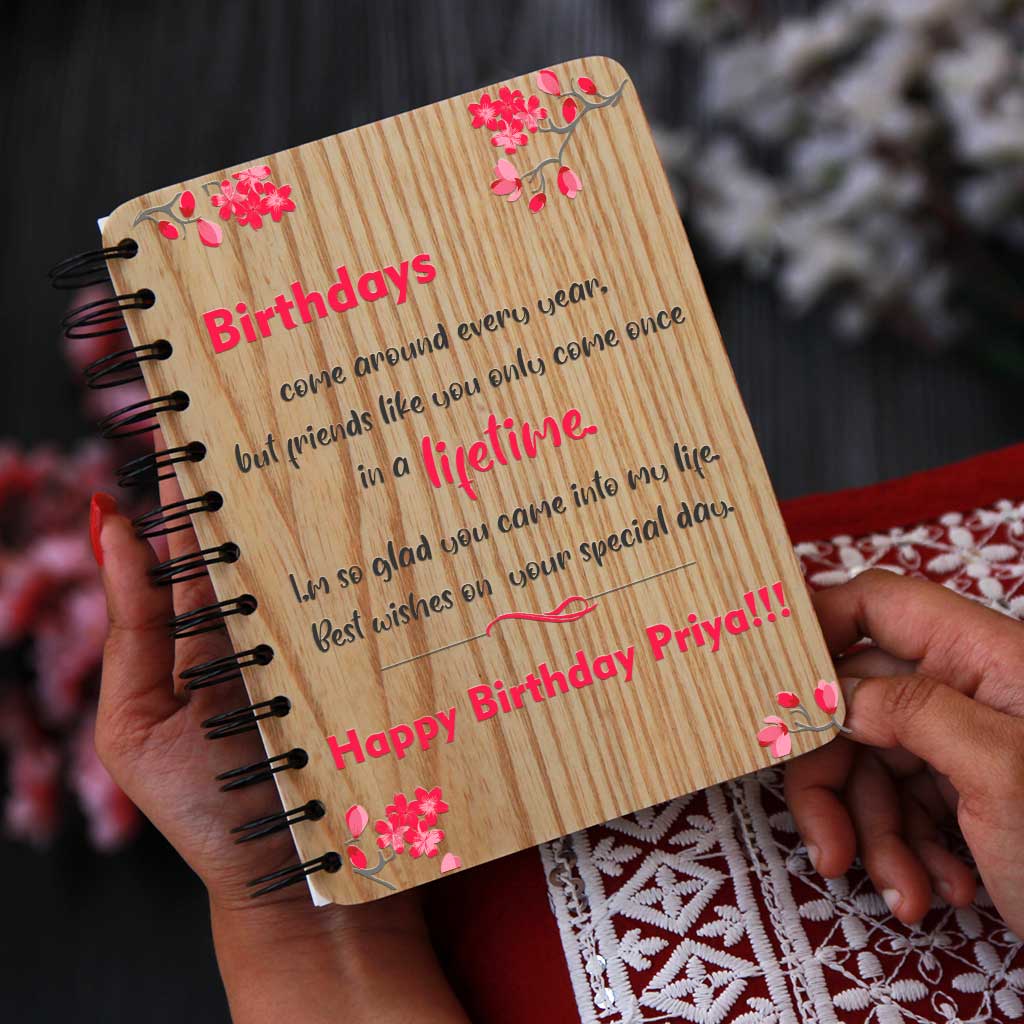 Birthdays
come around every year,
but friends like you only come once
in a lifetime.
I,m so glad you came into my life.
Best wishes on your special day.
Happy Birthday Priya!!!